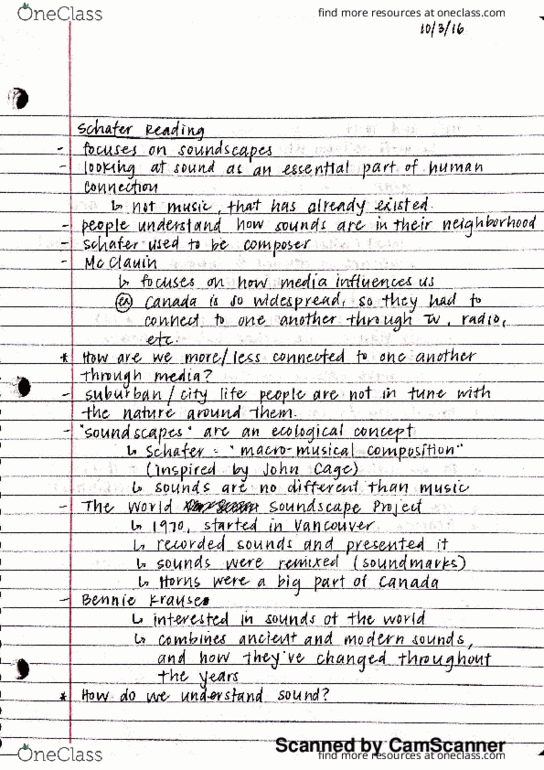 OneClass
find more resources at oneclass.com
10/3/16
Schafer Reading
- focuses on soundscapes
- looking at sound as an essential part of human
connection
↳ not music, that has already existed
- people understand how sounds are in their neighborhood
- Schafer used to be composer
- McClauin
↳ focuses on how media influences us
(ex) Canada is so widespread, so they had to
connect to one another through TV, radio,
etc.
* How are we more/less connected to one another
through media?
- suburban/city life people are not in tune with
the nature around them.
- "soundscapes" are an ecological concept
↳ Schafer = "macro-musical composition"
(inspired by John Cage)
↳ sounds are no different than music
- The World Soundscape Project
↳ 1970, started in Vancouver
↳ recorded sounds and presented it
↳ sounds were remixed (soundmarks)
↳ Horns were a big part of Canada
- Bennie Krause
↳ interested in sounds of the world
↳ combines ancient and modern sounds,
and how they've changed throughout
the years
* How do we understand sound?
Scanned by CamScanner
OneClass
find more resources at oneclass.com